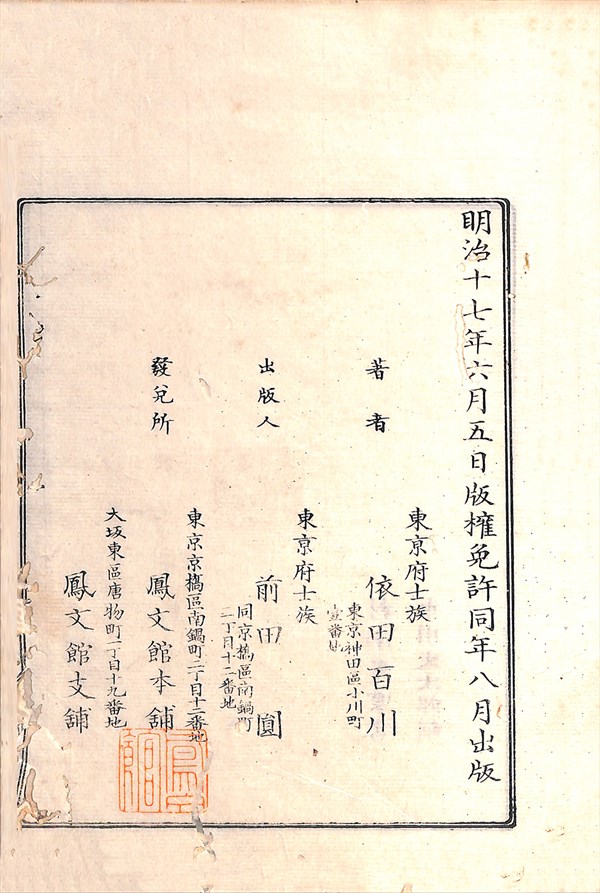 明治十七年六月五日版權免許同年八月出版
東京府士族
著者
依田百川
東京神田區小川町
壹番地
東京府士族
出版人
前田圓
同京橋區南鍋町
二丁目十二番地
東京京橋區南鍋町二丁目十二番地
發兌所
鳳文館本舖
大坂東區唐物町一丁目十九番地
鳳文館支舖